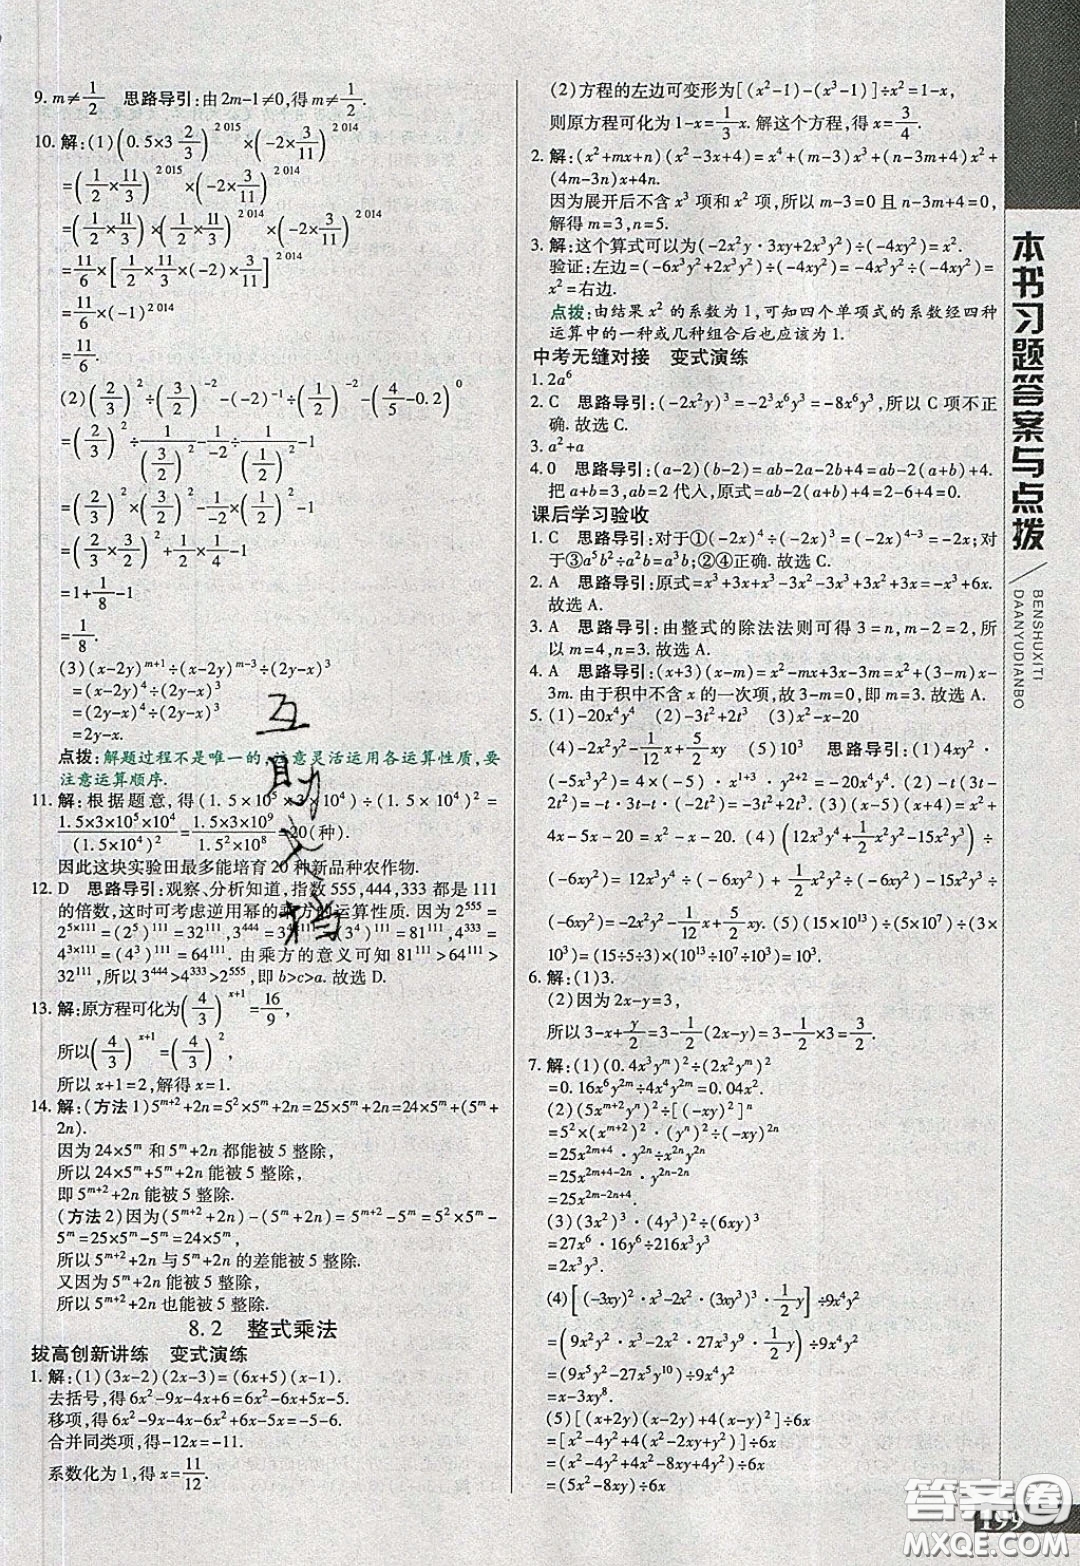 9. m≠1/2　思路导引:由2m-1≠0,得m≠1/2.
10. 解:(1)(0.5×3 2/3)^2015×(-2×3/11)^2014
=(1/2×11/3)^2015×(-2×3/11)^2014
=(1/2×11/3)×(1/2×11/3)^2014×(-2×3/11)^2014
=11/6×[1/2×11/3×(-2)×3/11]^2014
=11/6×(-1)^2014
=11/6.
(2)(2/3)^2÷(3/2)^-2-(-2)^-1-(-1/2)^-2-(4/5-0.2)^0
(3)(x-2y)^(m+1)÷(x-2y)^(m-3)÷(2y-x)^3
=(x-2y)^4÷(2y-x)^3
=(2y-x)^4÷(2y-x)^3
=2y-x.
点拨:解题过程不是唯一的,注意灵活运用各运算性质,要
注意运算顺序.
11. 解:根据题意,得(1.5×10^5×3×10^4)÷(1.5×10^4)^2=
(1.5×3×10^5×10^4)/(1.5×10^4)^2=(1.5×3×10^9)/(1.5^2×10^8)=20(种).
因此这块实验田最多能培育20种新品种农作物.
12. D　思路导引:观察、分析知道,指数555,444,333都是111
的倍数,这时可考虑逆用幂的乘方的运算性质.因为2^555=
2^(5×111)=(2^5)^111=32^111,3^444=3^(4×111)=(3^4)^111=81^111,4^333=
4^(3×111)=(4^3)^111=64^111.由乘方的意义可知81^111>64^111>
32^111,所以3^444>4^333>2^555,即b>c>a.故选D.
13. 解:原方程可化为(4/3)^(x+1)=16/9,
所以(4/3)^(x+1)=(4/3)^2,
所以x+1=2,解得x=1.
14. 解:(方法1)5^(m+2)+2n=5^2×5^m+2n=25×5^m+2n=24×5^m+(5^m+
2n).
因为24×5^m和5^m+2n都能被5整除,
所以24×5^m+5^m+2n能被5整除.
即5^(m+2)+2n能被5整除.
(方法2)因为(5^(m+2)+2n)-(5^m+2n)=5^(m+2)-5^m=5^2×5^m-5^m
=25×5^m-5^m=24×5^m,
所以5^(m+2)+2n与5^m+2n的差能被5整除,
又因为5^m+2n能被5整除,
所以5^(m+2)+2n也能被5整除.
8.2　整式乘法
拔高创新讲练　变式演练
1. 解:(1)(3x-2)(2x-3)=(6x+5)(x-1).
去括号,得6x^2-9x-4x+6=6x^2-6x+5x-5.
移项,得6x^2-9x-4x-6x^2+6x-5x=-5-6.
合并同类项,得-12x=-11.
系数化为1,得x=11/12.
(2)方程的左边可变形为[(x^2-1)-(x^3-1)]÷x^2=1-x,
则原方程可化为1-x=1/3x.解这个方程,得x=3/4.
2. 解:(x^2+mx+n)(x^2-3x+4)=x^4+(m-3)x^3+(n-3m+4)x^2+
(4m-3n)x+4n.
因为展开后不含x^3项和x^2项,所以m-3=0且n-3m+4=0,
解得m=3,n=5.
3. 解:这个算式可以为(-2x^2y·3xy+2x^3y^2)÷(-4xy^2)=x^2.
验证:左边=(-6x^3y^2+2x^3y^2)÷(-4xy^2)=-4x^3y^2÷(-4xy^2)=
x^2=右边.
点拨:由结果x^2的系数为1,可知四个单项式的系数经四种
运算中的一种或几种组合后也应该为1.
中考无缝对接　变式演练
1. 2a^6
2. C　思路导引:(-2x^2y)^3=-2^3x^6y^3=-8x^6y^3,所以C项不正
确.故选C.
3. a^2+a
4. 0　思路导引:(a-2)(b-2)=ab-2a-2b+4=ab-2(a+b)+4.
把a+b=3,ab=2代入,原式=ab-2(a+b)+4=2-6+4=0.
课后学习验收
1. C　思路导引:对于①(-2x)^4÷(-2x)^3=(-2x)^(4-3)=-2x;对
于③a^5b^2÷a^2b=a^3b;②④正确.故选C.
2. A　思路导引:原式=x^3+3x+x^3-3x^2-3x^3+3x^2+3x=-x^3+6x.
故选A.
3. A　思路导引:由整式的除法法则可得3=n,m-2=2,所
以m=4,n=3.故选A.
4. A　思路导引:(x+3)(x-m)=x^2-mx+3x-3m=x^2+(3-m)x-
3m.由于积中不含x的一次项,故3-m=0,即m=3.故选A.
5. (1)-20x^4y^4　(2)-3t^3+2t^2+2t　(3)x^2-x-20
(4)-2x^2y^2-1/12x+5/2xy　(5)10^3　思路导引:(1)4xy^2·
(-5x^3y^2)=4×(-5)·x^(1+3)·y^(2+2)=-20x^4y^4.(2)-t(3t-
2t+2)=-t·3t-t·(-2t)-2t.(3)(x-5)(x+4)=x^2+
4x-5x-20=x^2-x-20.(4)(12x^3y^4+1/2x^2y^2-15x^2y^3)÷
(-6xy^2)=12x^3y^4÷(-6xy^2)+1/2x^2y^2÷(-6xy^2)-15x^2y^3÷
(-6xy^2)=-2x^2y^2-1/12x+5/2xy.(5)(15×10^13)÷(5×10^7)÷(3×
10^3)=(15÷5÷3)×(10^13÷10^7÷10^3)=10^3.
6. 解:(1)3.
(2)因为2x-y=3,
所以3-x+y/2=3-1/2(2x-y)=3-1/2×3=3/2.
7. 解:(1)(0.4x^3y^m)^2÷(2x^2y^m)^2
=0.16x^6y^2m÷4x^4y^2m=0.04x^2.
(2)(5x^(m+2)y^n)^2÷[(-xy)^2]^n
=5^2×(x^(m+2))^2·(y^n)^2÷(-xy)^2n
=25x^(2m+4)·y^2n÷x^2ny^2n
=25x^(2m+4-2n)·y^(2n-2n)
=25x^(2m-2n+4).
(3)(3x^2)^3·(4y^3)^2÷(6xy)^3
=27x^6·16y^6÷216x^3y^3
=2x^3y^3.
(4)[(-3xy)^2·x^3-2x^2·(3xy^3)^3·1/2y]÷9x^4y^2
=(9x^2y^2·x^3-2x^2·27x^3y^9·1/2y)÷9x^4y^2
=(9x^5y^2-27x^5y^10)÷9x^4y^2
=x-3xy^8.
(5)[(x+2y)(x-2y)+4(x-y)^2]÷6x
=[x^2-4y^2+4(x^2-2xy+y^2)]÷6x
=(x^2-4y^2+4x^2-8xy+4y^2)÷6x
=(5x^2-8xy)÷6x
本书习题答案与点拨
BENSHUXITI
DAANYUDIANBO
互
助
文
档
答案圈
MXQE.COM
199